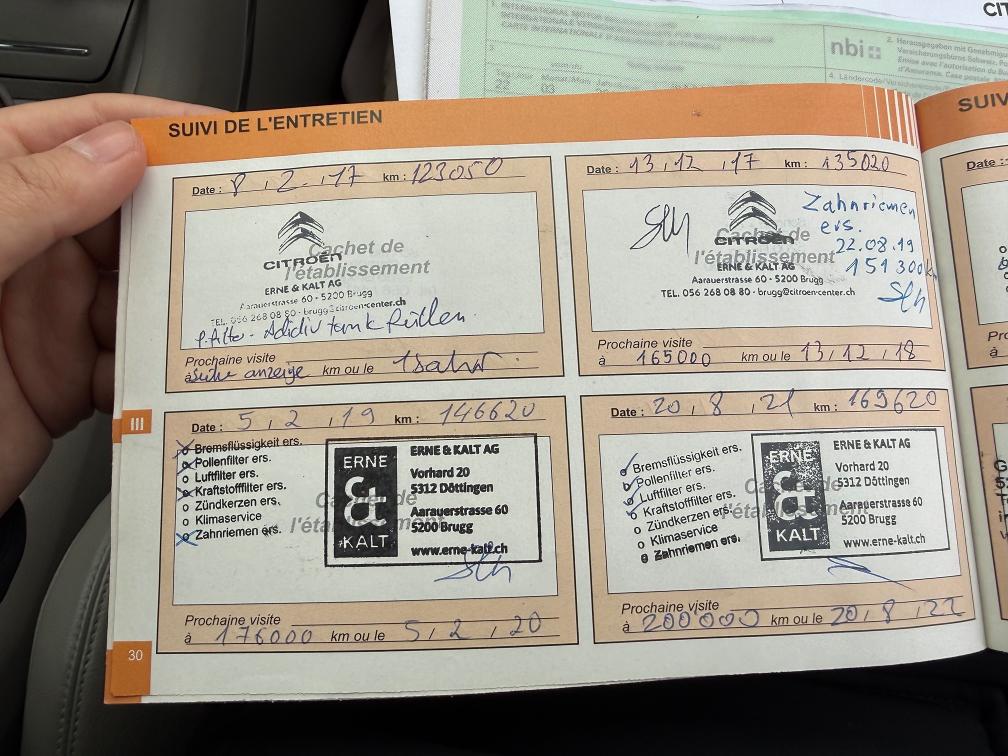 CIT
INTERNATIONAL MOTOR INSURANCE CARD
CARTE INTERNATIONALE D'ASSURANCE AUTOMOBILE
nbi
2. Herausgegeben mit Genehmigu
Versicherungsbüros Schweiz.
Emise avec l'autorisation du Bu
d'Assurance.
03
SUIVI DE L'ENTRETIEN
SUIV
Date : 8 , 2 , 17 km : 123050
Cachet de
l'établissement
CITROËN
ERNE & KALT AG
Aarauerstrasse 60 - 5200 Brugg
TEL. 056 268 08 80 - brugg@citroen-center.ch
P. Filter - Adidiv tank füllen.
Prochaine visite
à Siehe anzeige km ou le 1 Jahr
Date : 13,12 ,17 km : 135020
Cachet de
l'établissement
CITROËN
ERNE & KALT AG
Aarauerstrasse 60 - 5200 Brugg
TEL. 056 268 08 80 - brugg@citroen-center.ch
Zahnriemen
ers.
22.08.19
151 300 km
Prochaine visite
à 165000 km ou le 13,12,18
Date
III
Date : 5 , 2 , 19 km : 146620
Bremsflüssigkeit ers.
Pollenfilter ers.
Luftfilter ers.
Kraftstofffilter ers.
Zündkerzen ers.
Klimaservice
Zahnriemen ers.
Cachet de
l'établissement
ERNE
&
KALT
ERNE & KALT AG
Vorhard 20
5312 Döttingen
Aarauerstrasse 60
5200 Brugg
www.erne-kalt.ch
Prochaine visite
à 176000 km ou le 5 , 2 , 20
Date : 20 , 8 , 21 km : 169620
Bremsflüssigkeit ers.
Pollenfilter ers.
Luftfilter ers.
Kraftstofffilter ers.
Zündkerzen ers.
Klimaservice
Zahnriemen ers.
Cachet de
l'établissement
ERNE
&
KALT
ERNE & KALT AG
Vorhard 20
5312 Döttingen
Aarauerstrasse 60
5200 Brugg
www.erne-kalt.ch
Prochaine visite
à 200'000 km ou le 20, 8 , 22
30